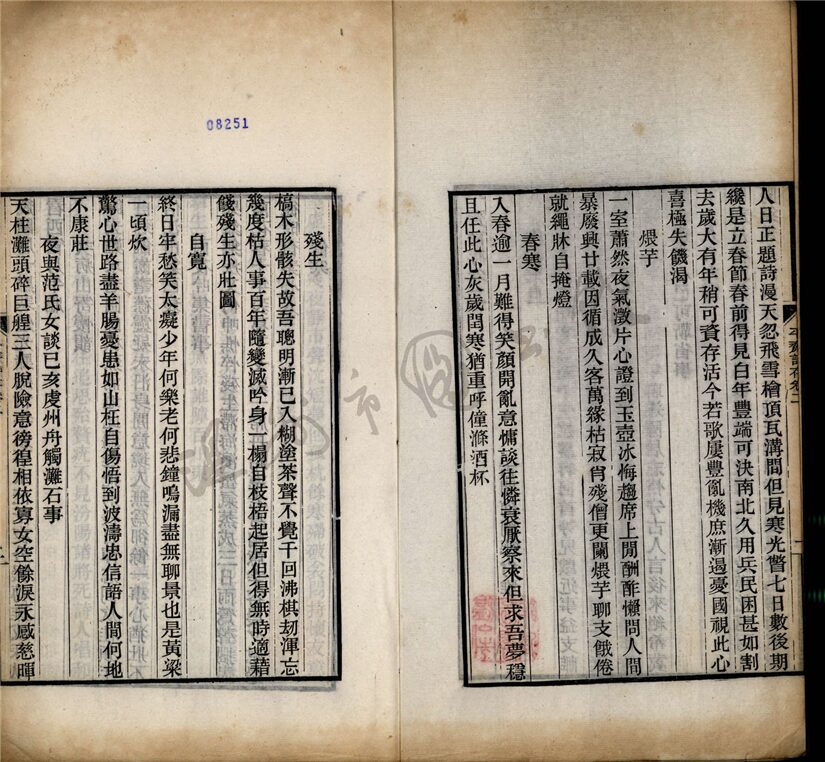 人日正題詩漫天忽飛雪檜頂瓦溝間但見寒光瞥七日數後期
纔是立春節春前得見白年豐端可決南北久用兵民困甚如割
去歲大有年稍可資存活今若歌屢豐亂機庶漸遏憂國視此心
喜極失饑渴
煨芋
一室蕭然夜氣澂片心證到玉壺冰悔趨席上閒酬酢懶問人間
暴廢興廿載因循成久客萬緣枯寂肖殘僧更闌煨芋聊支餓倦
就繩牀自掩燈
春寒
入春逾一月難得笑顏開亂意慵談往憐衰厭察來但求吾夢穩
且任此心灰歲閏寒猶重呼僮滌酒杯
殘生
槁木形骸失故吾聰明漸已入糊塗茶聲不覺千回沸棋刼渾忘
幾度枯人事百年隨變滅吟身一榻自枝梧起居但得無時適藉
餞殘生亦壯圖
自寬
終日牢愁笑太癡少年何樂老何悲鐘鳴漏盡無聊景也是黃梁
一頃炊
驚心世路盡羊腸憂患如山枉自傷悟到波濤忠信語人間何地
不康莊
夜與范氏女談已亥虔州舟觸灘石事
天柱灘頭碎巨艎三人脫險意徬徨相依寡女空餘淚永感慈暉
08251